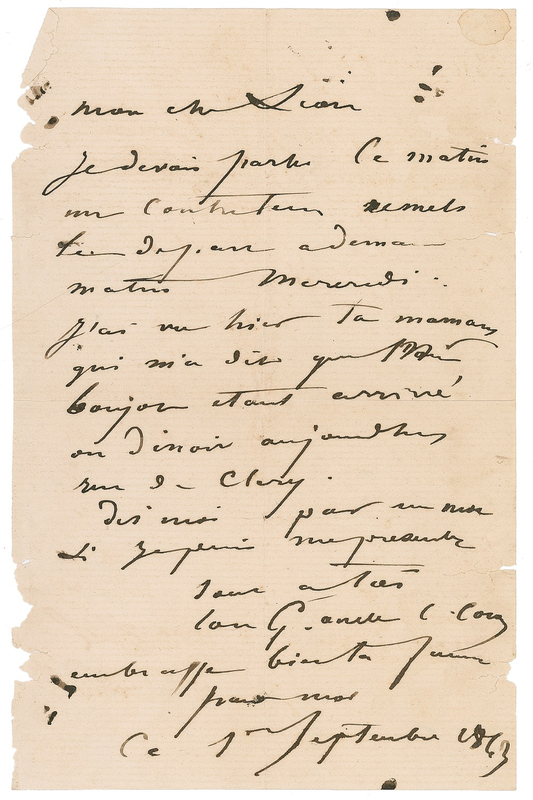 mon cher Léon
Je devais partir Ce matin
un Contretems remets
le départ a demain
matin Mercredi.
J'ai vu hier ta maman
qui m'a dit que Mr
bonjon etant arrivé
on dinoit aujourdhuy
rue de Clery.
dis moi par un mot
si je puis me presenter
ton
embrasse bien ta femme
pour moi
Ce 1er Septembre 1863